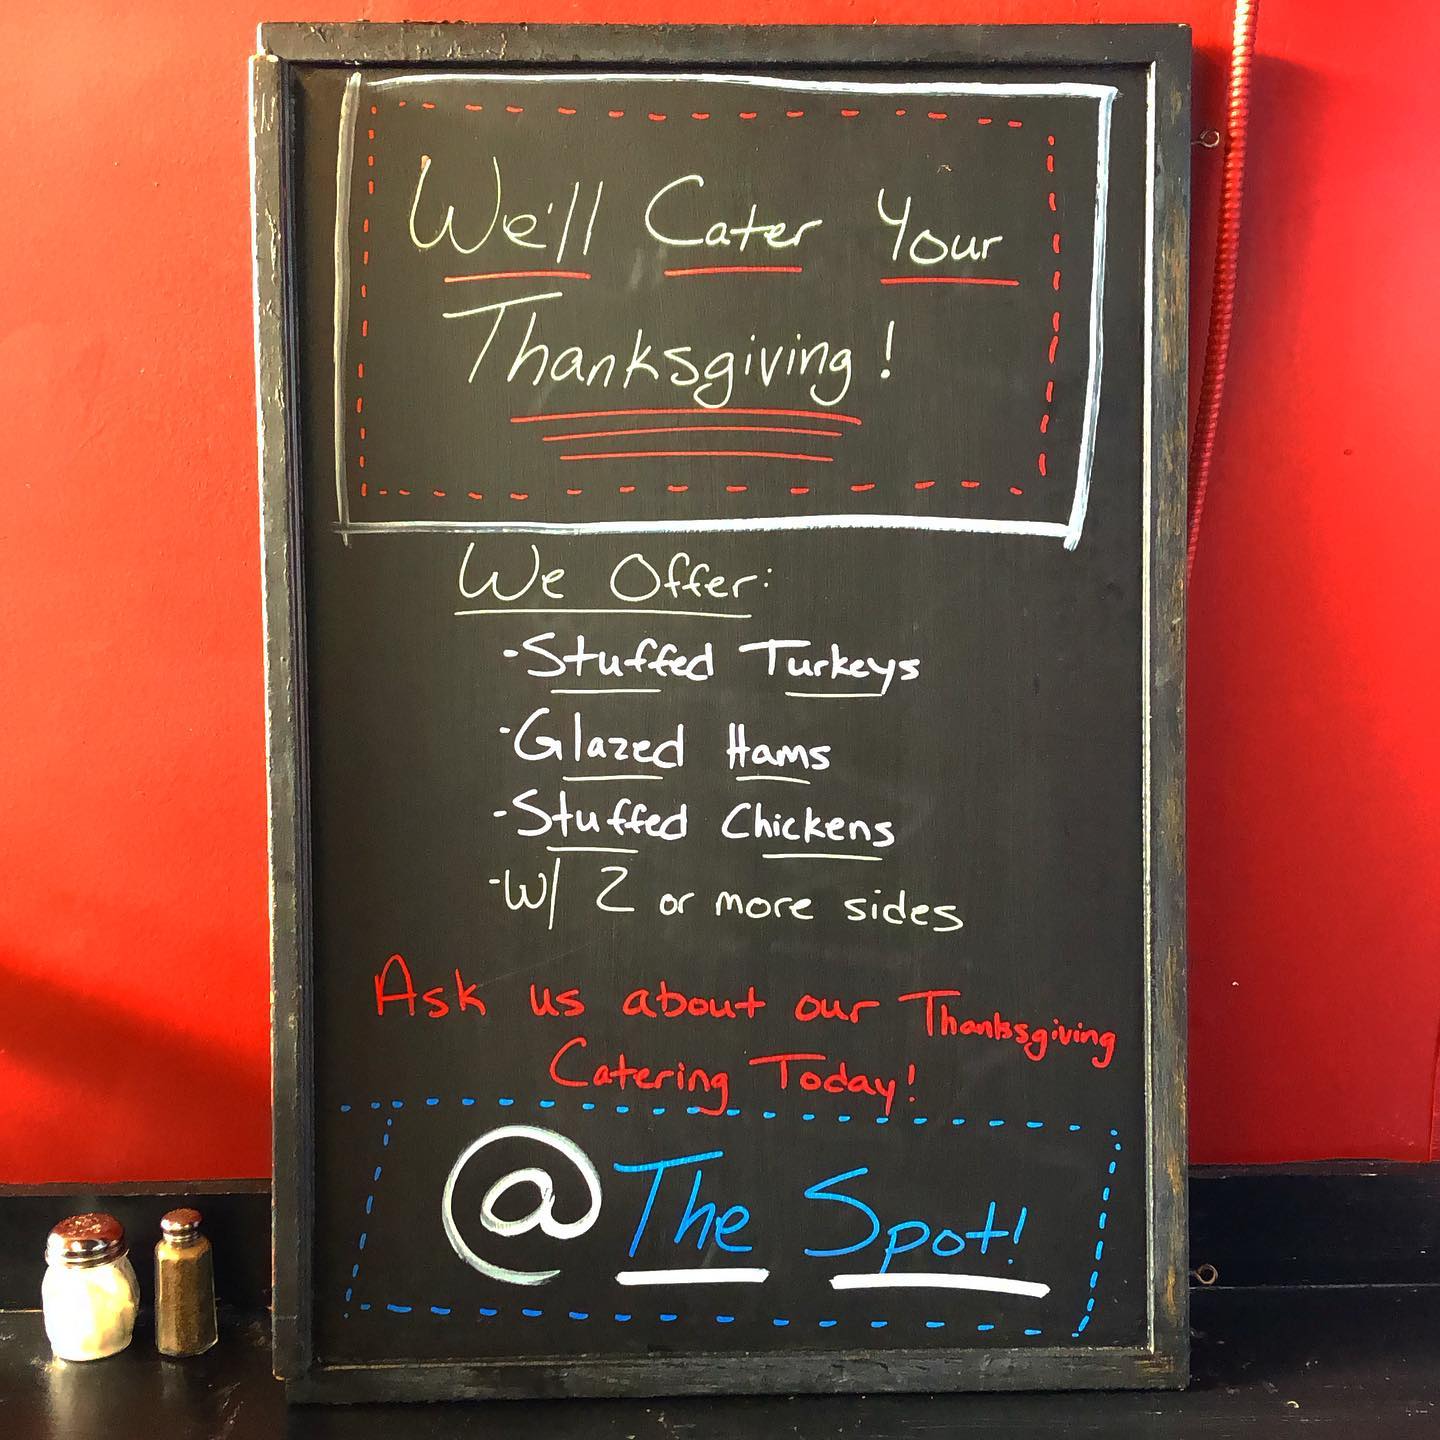 We'll Cater Your
Thanksgiving!
We Offer:
-Stuffed Turkeys
-Glazed Hams
-Stuffed Chickens
-W/ 2 or more sides
Ask us about our Thanksgiving
Catering Today!
@The Spot!